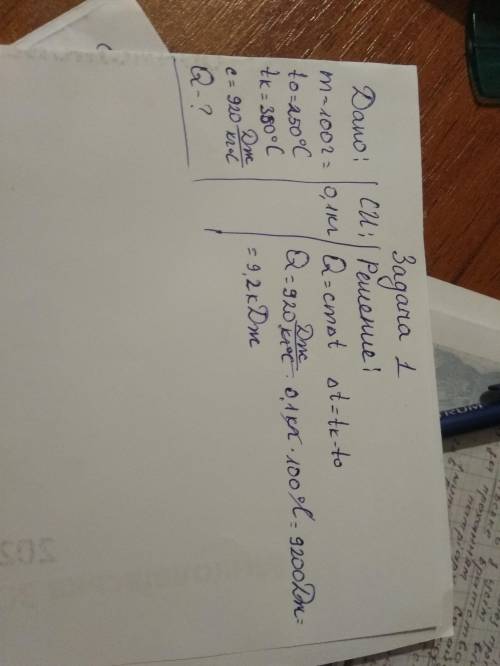 Задача 1
Дано: СИ: Решение:
m=100г= 0,1кг Q=cmΔt Δt=tк-to
to=250°C Q=920 Дж/кг°C · 0,1кг · 100°C = 9200Дж=
tк=350°C = 9,2кДж
c=920 Дж/кг°C
Q-?